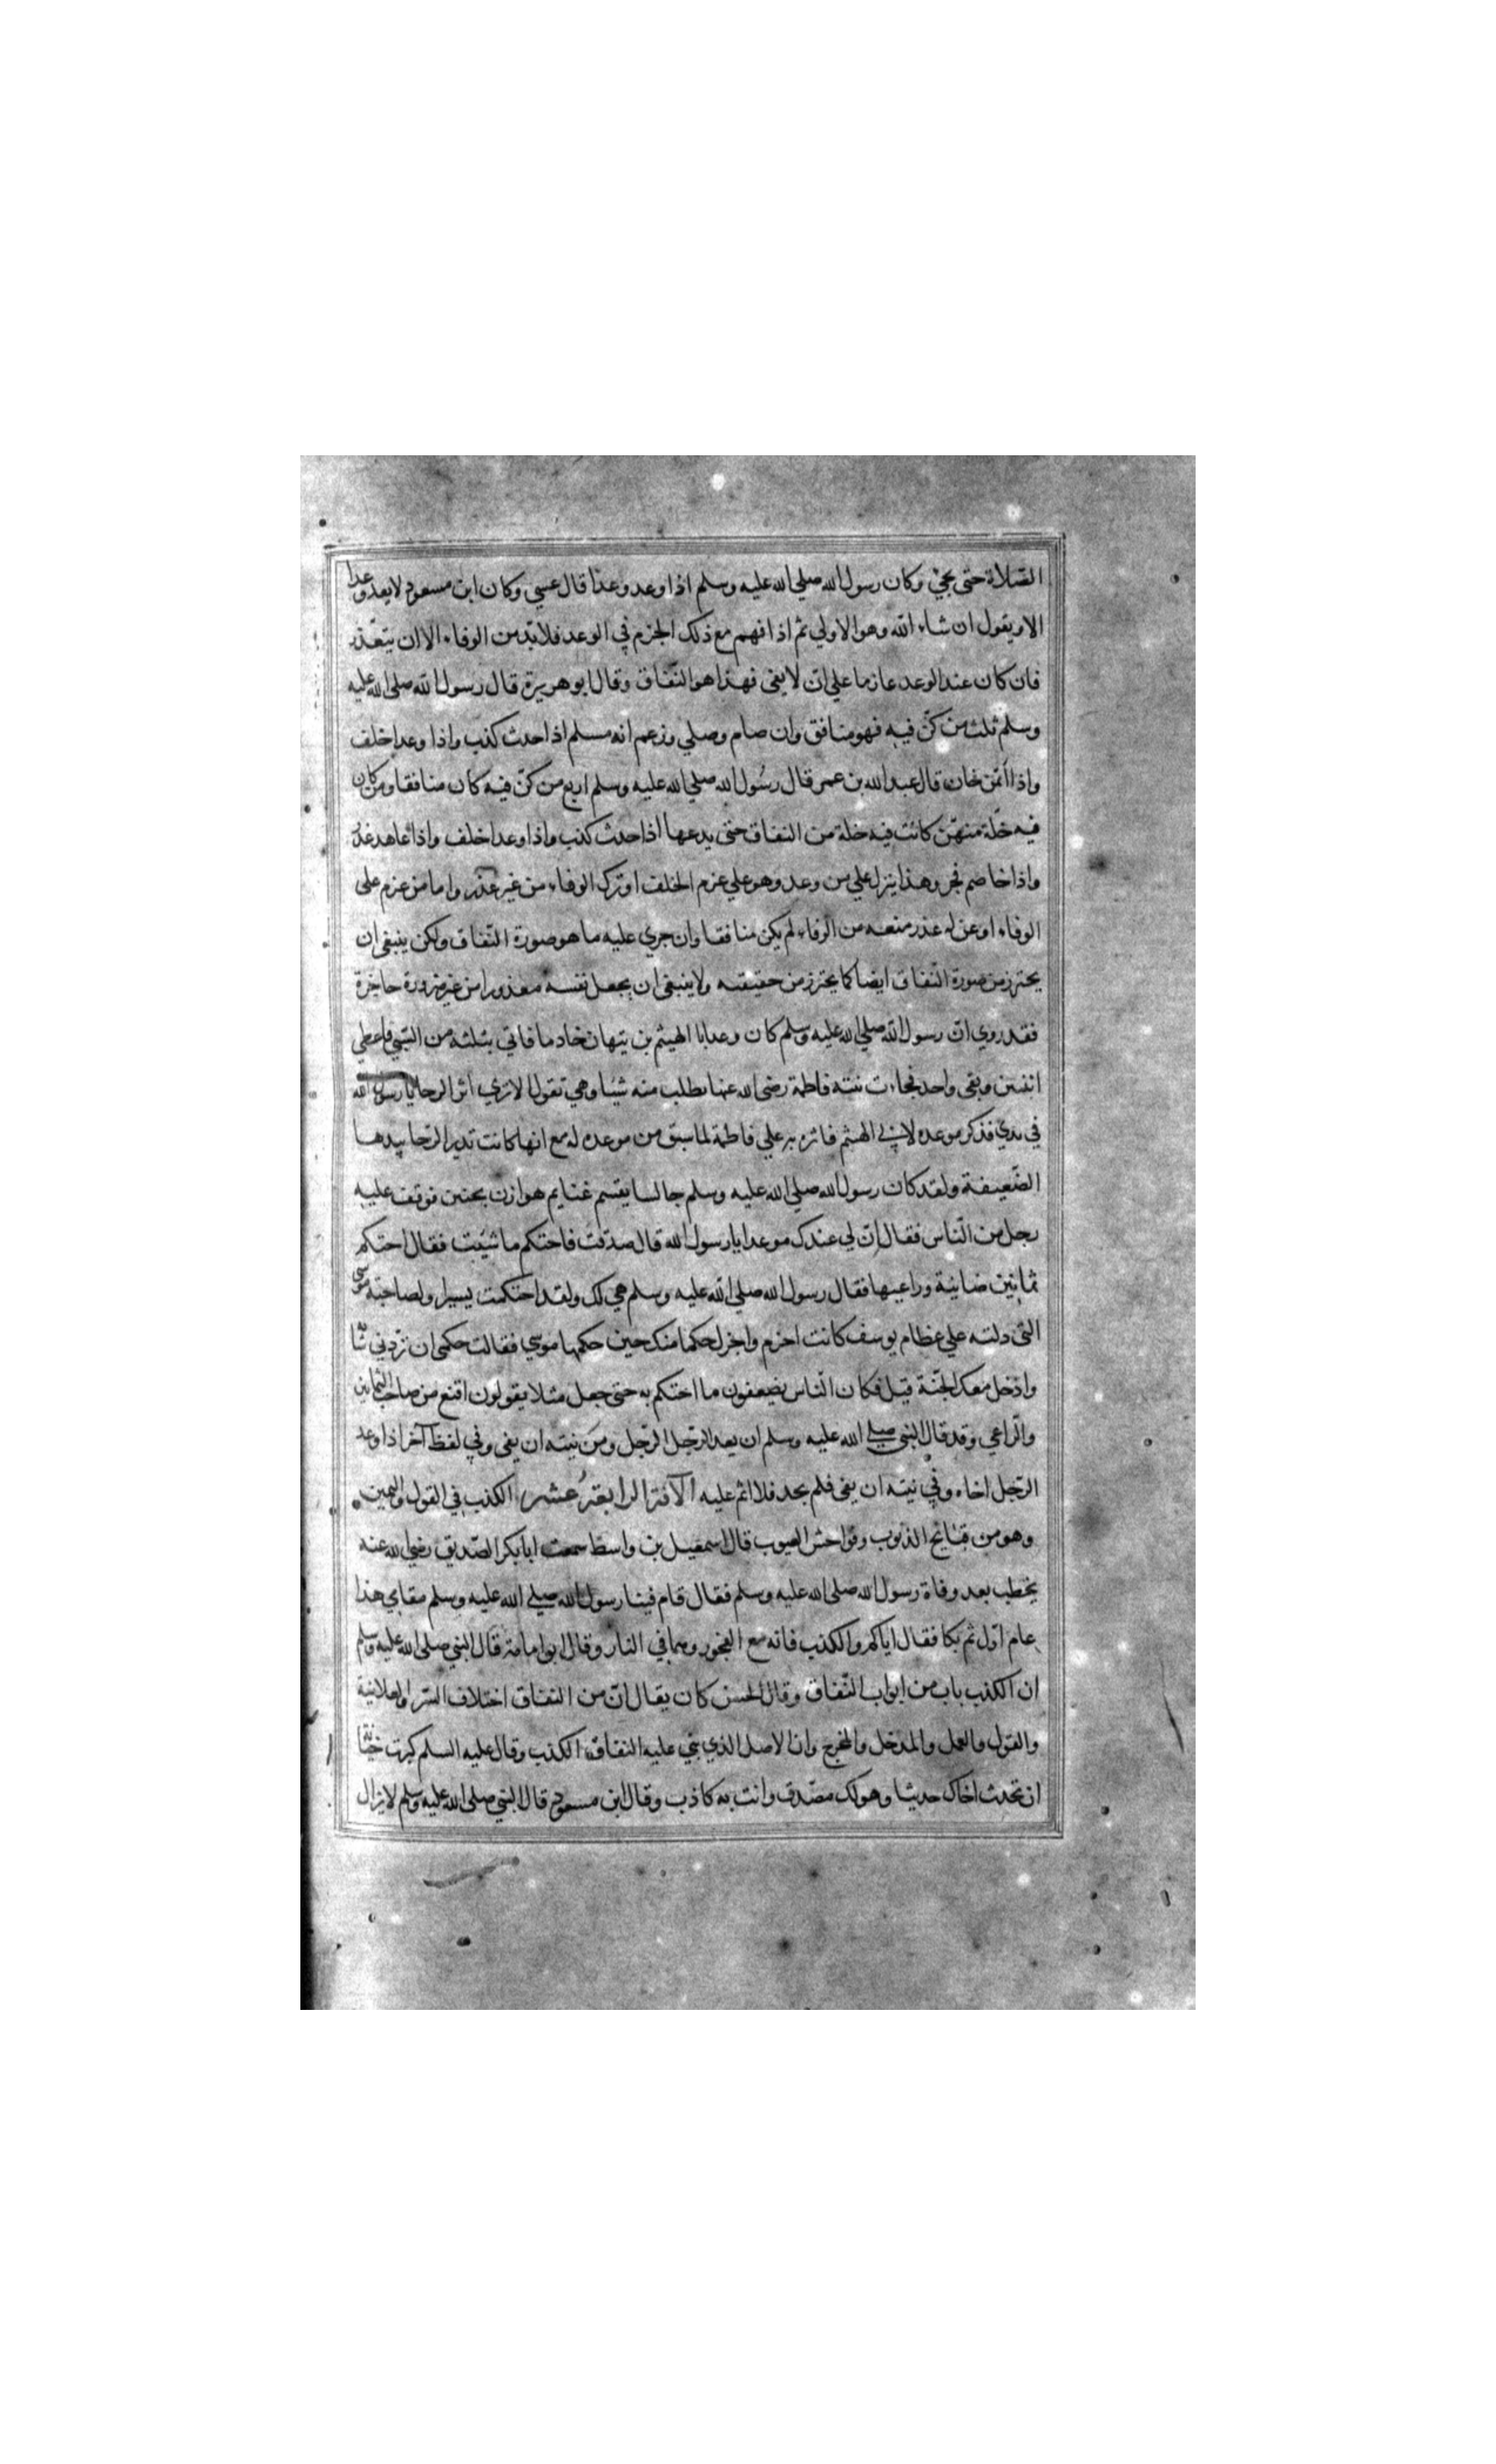 الصلاة حتى يجئ وكان رسول الله صلي الله عليه وسلم اذا وعد وعدا قال عسي وكان ابن مسعود لا يعد وعدا
الا ويقول ان شاء الله وهو الاولي ثم اذا فهم مع ذلك الجزم في الوعد فلا بد من الوفاء الا ان يتعذر
فان كان عند الوعد عازما علي ان لا يفى فهذا هو النفاق وقال ابو هريرة قال رسول الله صلى الله عليه
وسلم ثلث من كن فيه فهو منافق وان صام وصلي وزعم انه مسلم اذا حدث كذب واذا وعد اخلف
واذا ائتمن خان قال عبد الله بن عمر قال رسول الله صلي الله عليه وسلم اربع من كن فيه كان منافقا ومن كان
فيه خلة منهن كانت فيه خلة من النفاق حتى يدعها اذا حدث كذب واذا وعد اخلف واذا عاهد غدر
واذا خاصم فجر وهذا ينزل علي من وعد وهو علي عزم الخلف او ترك الوفاء من غير عذر واما من عزم على
الوفاء او عن له عذر منعه من الوفاء لم يكن منافقا وان جري عليه ما هو صورة النفاق ولكن ينبغى ان
يحترز من صورة النفاق ايضا كما يحترز من حقيقته ولا ينبغى ان يجعل نفسه معذورا من غير ضرورة حاجزة
فقد روي ان رسول الله صلي الله عليه وسلم كان وعد ابا الهيثم بن تيهان خادما فاتي بثلثه من السبي فاعطي
اثنين وبقى واحد فجاءت بنته فاطمة رضى الله عنها تطلب منه شيا وهي تقول الا تري اثر الرحا يا رسول الله
في يدي فذكر موعده لابي الهيثم فاثره به علي فاطمة لما سبق من موعده له مع انها كانت تدير الرحا بيدها
الضعيفة ولقد كان رسول الله صلى الله عليه وسلم جالسا يقسم غنايم هوازن بحنين فوقف عليه
رجل من الناس فقال ان لي عندك موعدا يا رسول الله قال صدقت فاحتكم ما شيت فقال احتكم
ثمانين ضاينة وراعيها فقال رسول الله صلى الله عليه وسلم هي لك ولقد احتكمت يسيرا ولصاحبة موسى
التى دلته علي عظام يوسف كانت احزم واجزل حكما منك حين حكمها موسي فقالت حكمى ان تردني شابة
وادخل معك الجنة قيل فكان الناس يضعفون ما احتكم به حتى جعل مثلا يقولون اقنع من صاحب الثمانين
والراعي وقد قال النبى صلي الله عليه وسلم ان يعد الرجل الرجل ومن نيته ان يفى وفي لفظ آخر اذا وعد
الرجل اخاه وفي نيته ان يفى فلم يجد فلا اثم عليه الآفة الرابعة عشر الكذب في القول واليمين
وهو من قبايح الذنوب وفواحش العيوب قال اسمعيل بن واسط سمعت ابا بكر الصديق رضي الله عنه
يخطب بعد وفاة رسول الله صلى الله عليه وسلم فقال قام فينا رسول الله صلي الله عليه وسلم مقامي هذا
عام اول ثم بكا فقال اياكم والكذب فانه مع الفجور وهما في النار وقال ابو امامة قال النبي صلى الله عليه وسلم
ان الكذب باب من ابواب النفاق وقال الحسن كان يقال ان من النفاق اختلاف السر والعلانية
والقول والعمل والمدخل والمخرج وان الاصل الذي بني عليه النفاق الكذب وقال عليه السلم كبرت خيانة
ان تحدث اخاك حديثا وهو لك مصدق وانت به كاذب وقال ابن مسعود قال النبي صلى الله عليه وسلم لا يزال